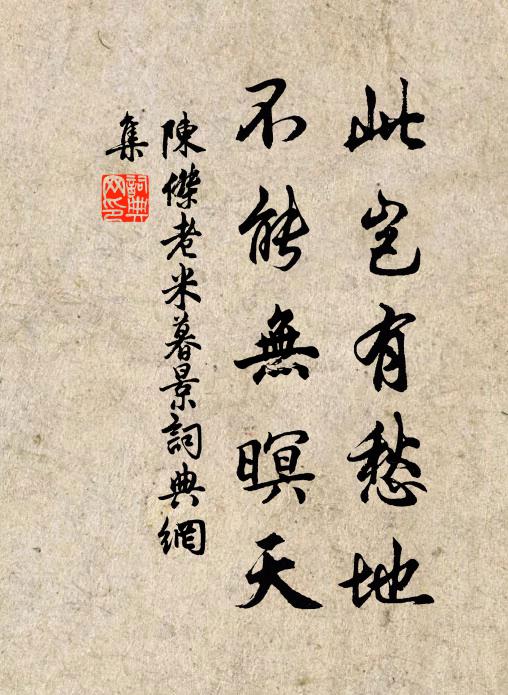 此豈有愁地
不能無暝天
陳傑老米暮景詞典網
集
詞典
网印